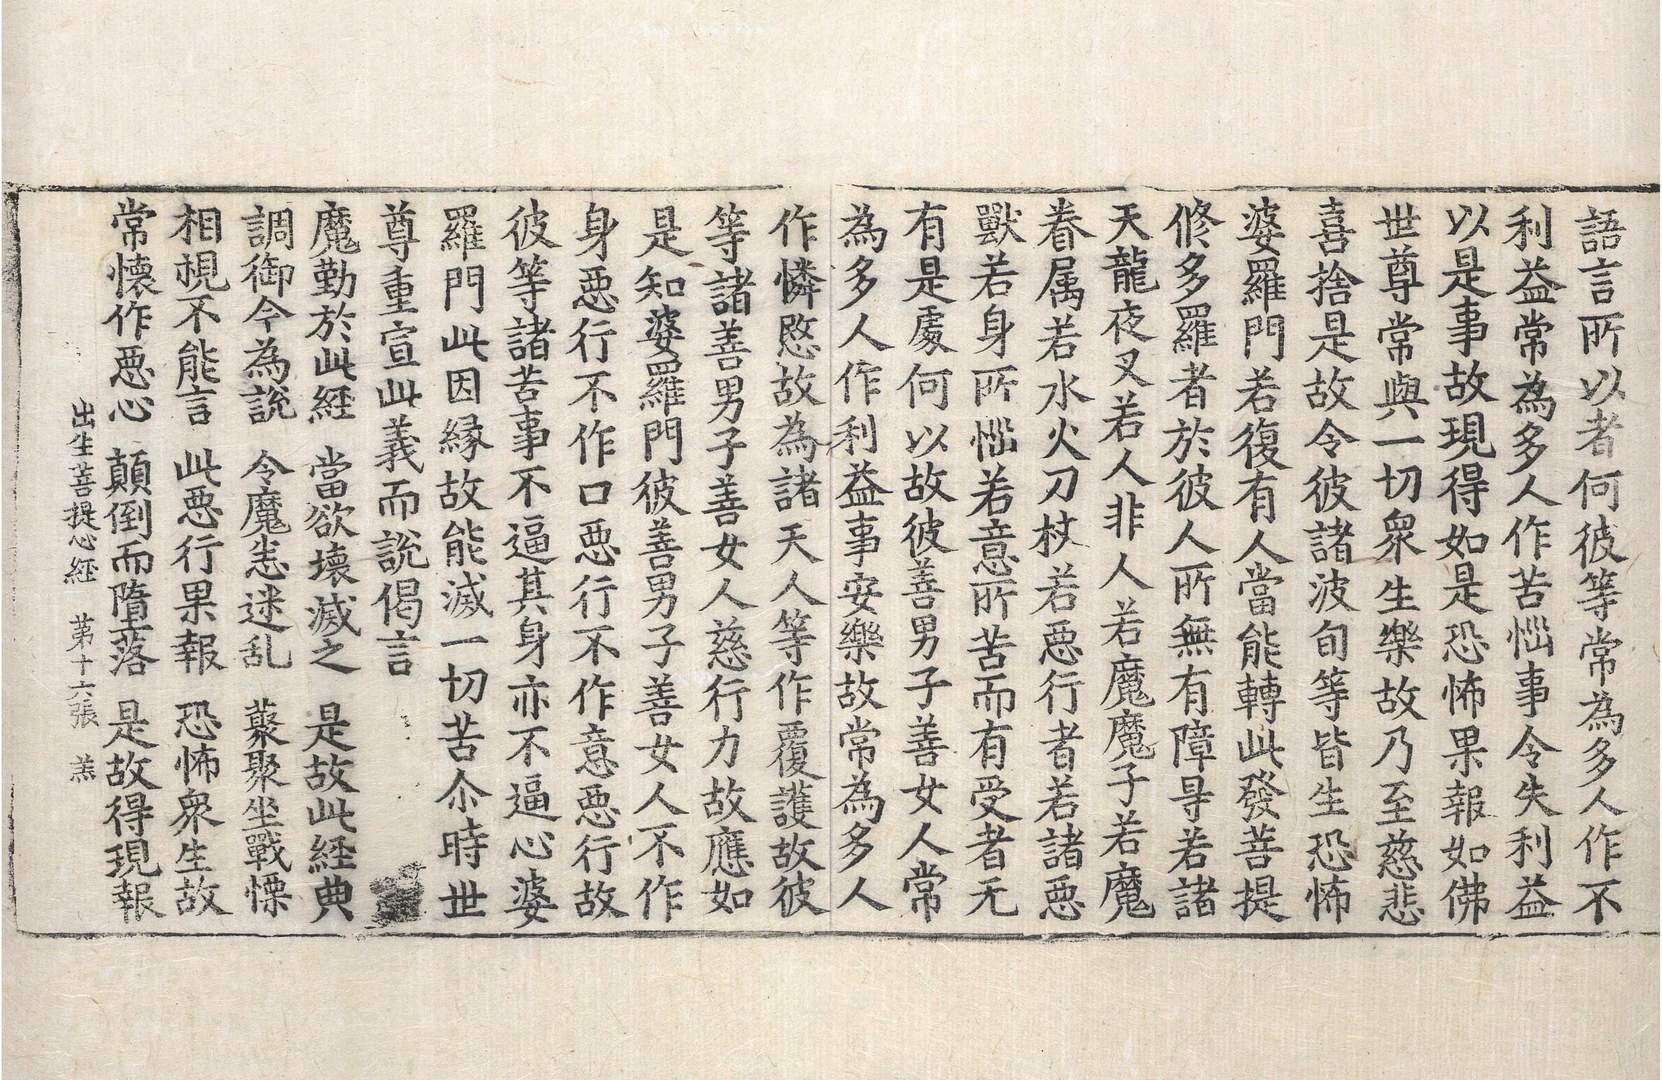 語言所以者何彼等常為多人作不
利益常為多人作苦惱事令失利益
以是事故現得如是恐怖果報如佛
世尊常與一切眾生樂故乃至慈悲
喜捨是故令彼諸波旬等皆生恐怖
婆羅門若復有人當能轉此發菩提
修多羅者於彼人所無有障㝵若諸
天龍夜叉若人非人若魔魔子若魔
眷属若水火刀杖若惡行者若諸惡
獸若身所惱若意所苦而有受者无
有是處何以故彼善男子善女人常
為多人作利益事安樂故常為多人
作憐愍故為諸天人等作覆護故彼
等諸善男子善女人慈行力故應如
是知婆羅門彼善男子善女人不作
身惡行不作口惡行不作意惡行故
彼等諸苦事不逼其身亦不逼心婆
羅門此因縁故能滅一切苦尒時世
尊重宣此義而說偈言
魔勤於此經 當欲壞滅之 是故此經典
調御今為說 令魔恚迷乱 藂聚坐戰慄
相視不能言 此惡行果報 恐怖眾生故
常懷作惡心 顛倒而墮落 是故得現報
出生菩提心經 第十六張 羔